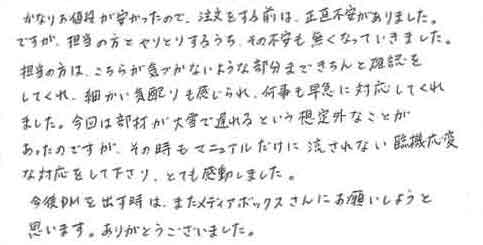 かなりお値段が安かったので、注文をする前は、正直不安がありました。
ですが、担当の方とやりとりするうち、その不安も無くなっていきました。
担当の方は、こちらが気づかないような部分まできちんと確認を
してくれ、細かい気配りも感じられ、何事も早急に対応してくれ
ました。今回は部材が大雪で遅れるという想定外なことが
あったのですが、その時もマニュアルだけに流されない臨機応変
な対応をして下さり、とても感動しました。
今後DMを出す時は、またメディアボックスさんにお願いしようと
思います。ありがとうございました。